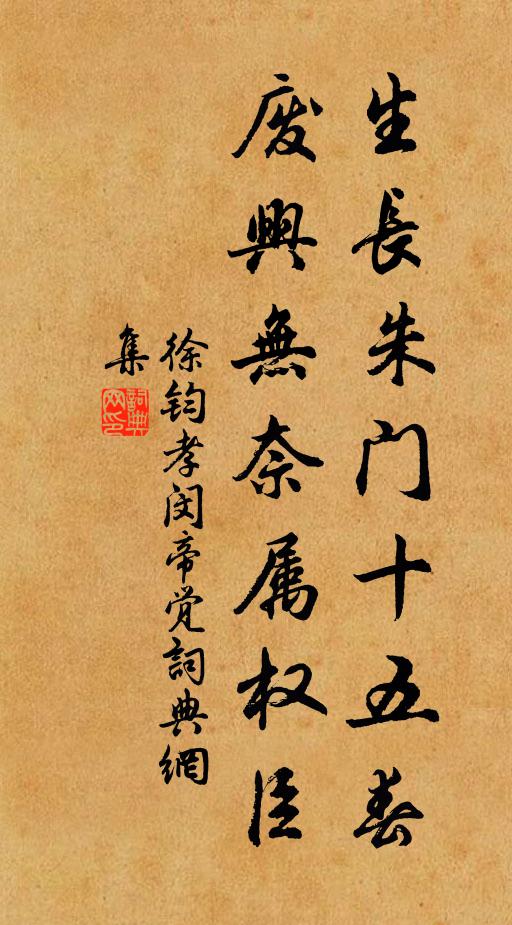 生長朱门十五春
废興無奈属权臣
徐钧孝闵帝觉詞典網
集
詞典网印